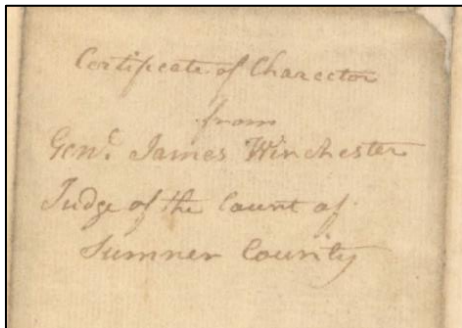 Certificate of Charector
from
Genl. James Winchester
Judge of the Count of
Sumner County